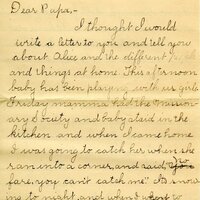 Dear Papa,-
I thought I would
write a letter to you and tell you
about Alice and the different
and things at home. This afternoon
baby has been playing with us girls
Friday mamma had the mission-
ary Society and baby staid in the
kitchen and when I came home
I was going to catch her when she
ran into a corner and said,
fare, you can't catch me."
ing to night and when I went to